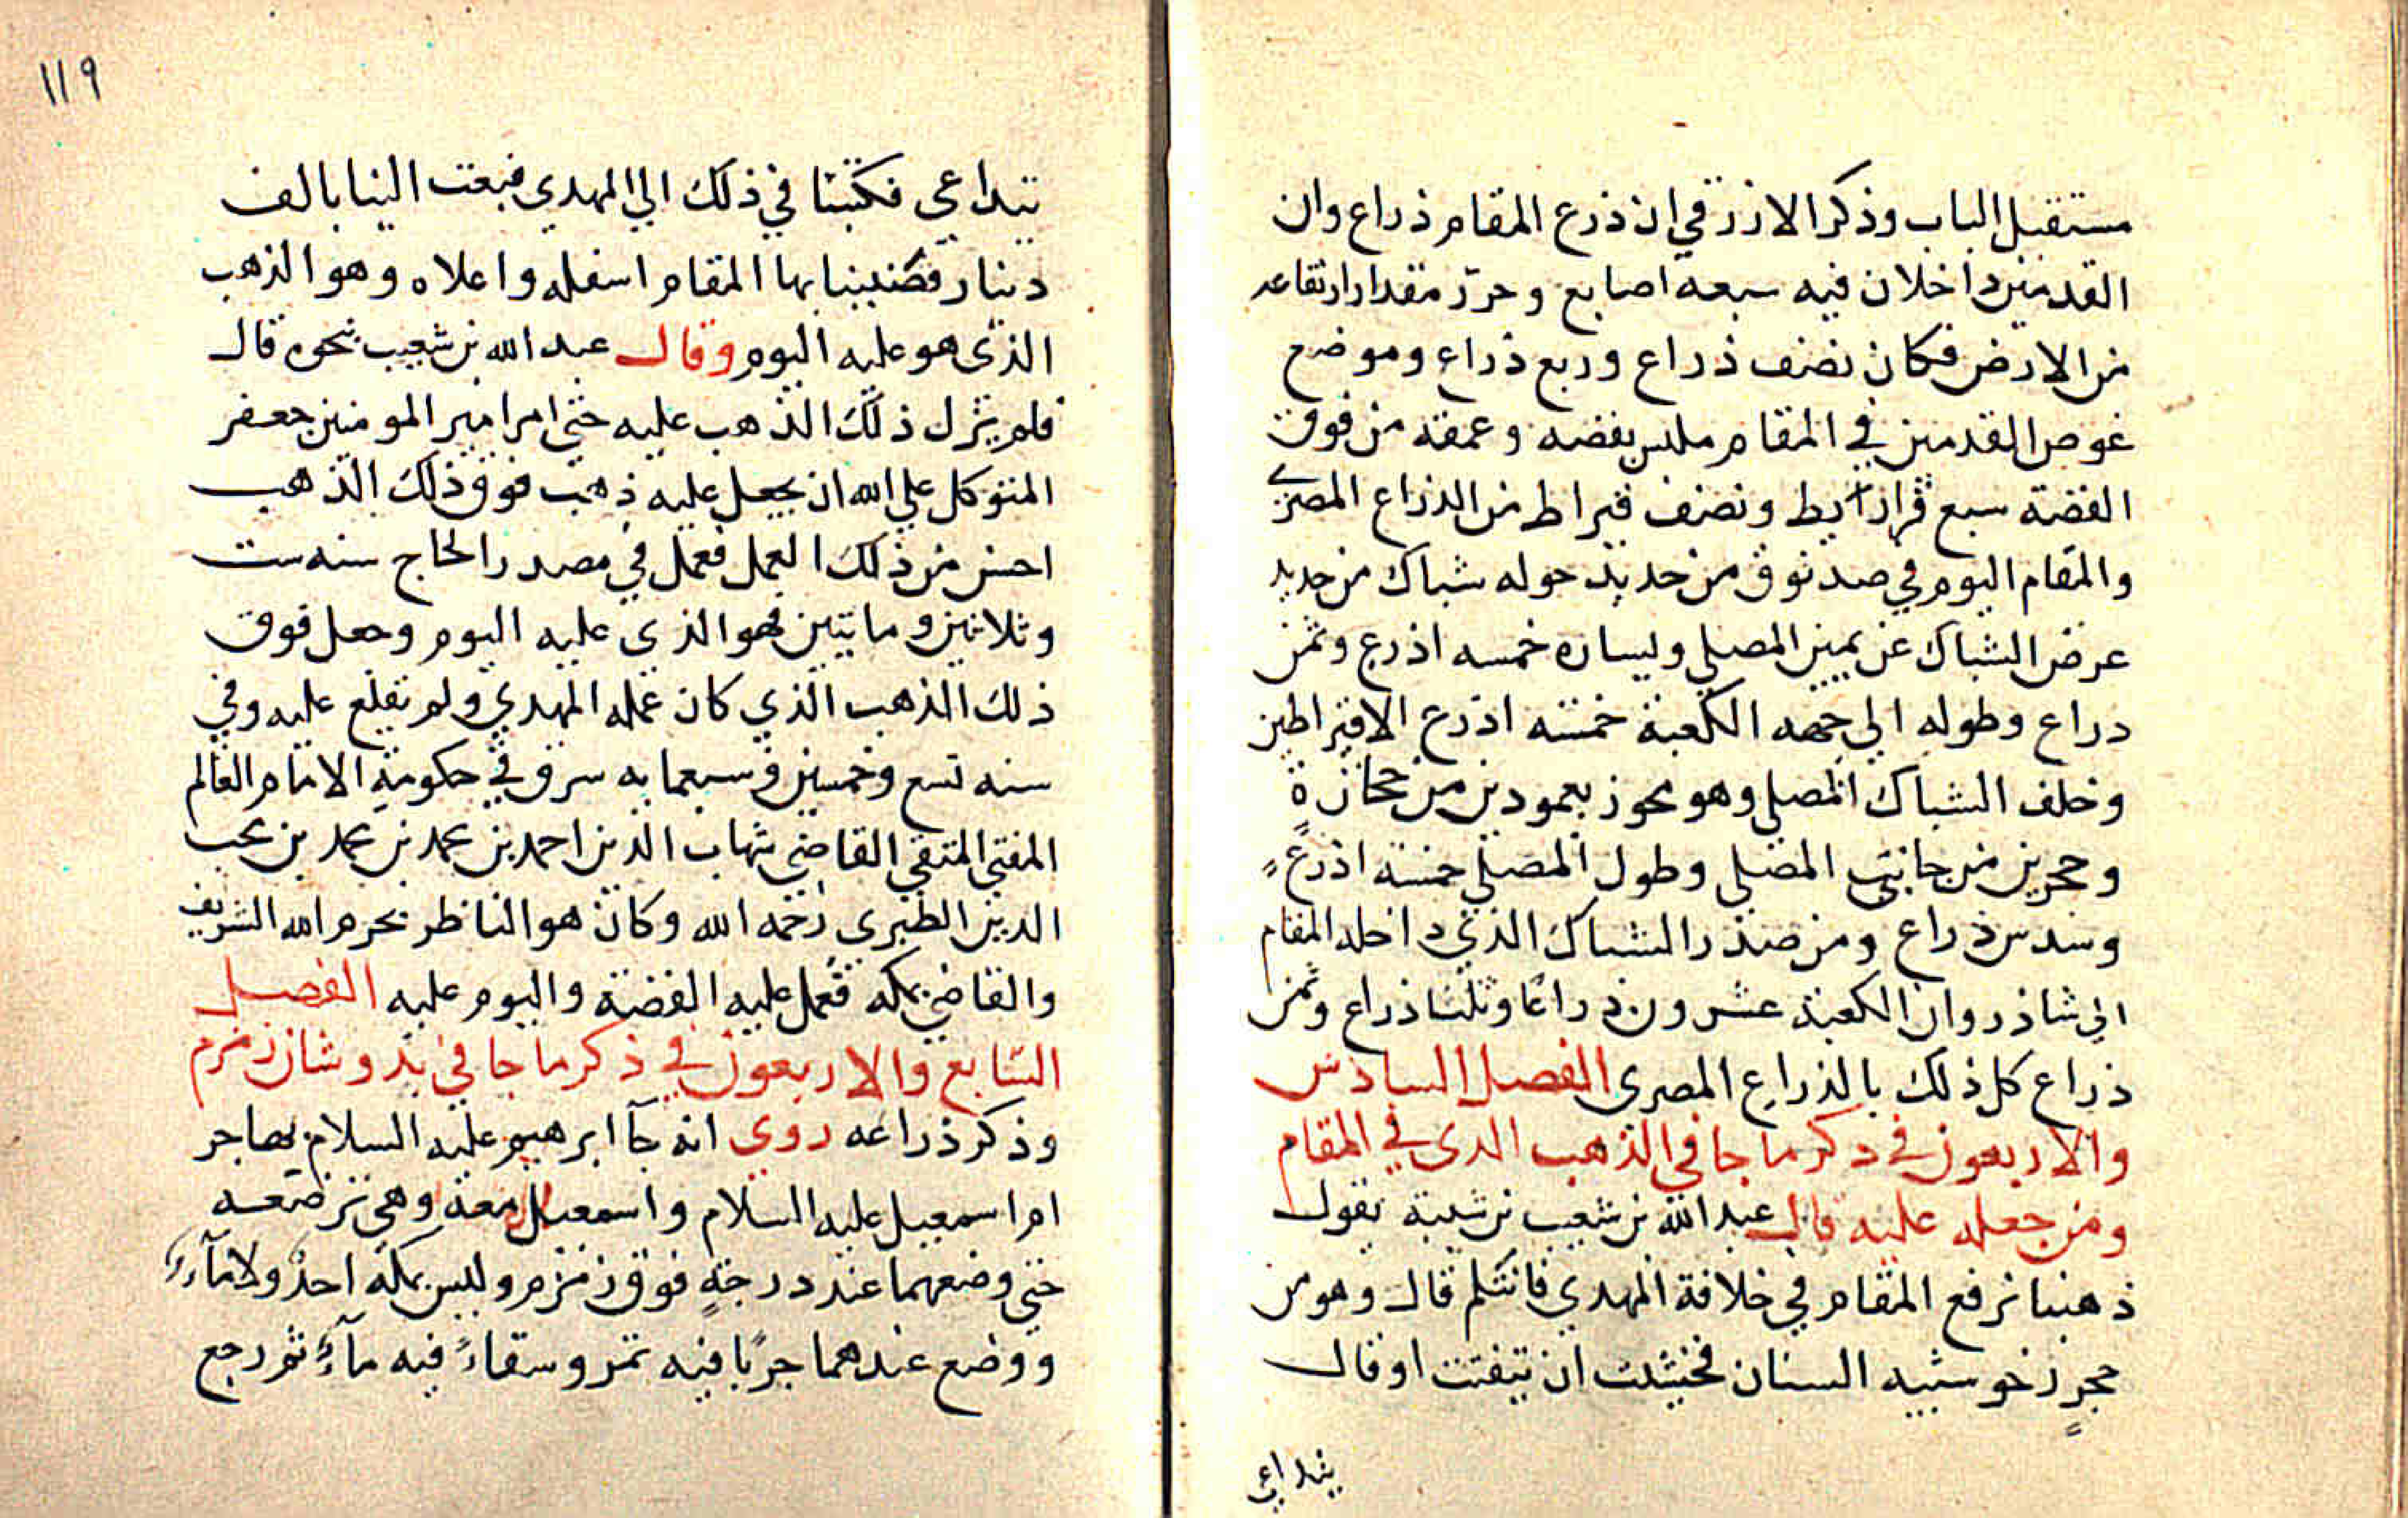 مستقبل الباب وذكر الازرقي ان ذرع المقام ذراع وان
القدمين داخلان فيه سبعه اصابع وحرّر مقدار ارتفاعه
من الارض فكان نصف ذراع وربع ذراع وموضع
غوص القدمين في المقام ملبس بفضه وعمقه من فوق
الفضة سبع قراريط ونصف قيراط من الذراع المصري
والمقام اليوم في صندوق من حديد حوله شباك من حديد
عرض الشباك عن يمين المصلي ويساره خمسه اذرع وثمن
دراع وطوله الي جهه الكعبة خمسه اذرع الا قيراطين
وخلف الشباك المصلي وهو محوز بعمودين من حجارة
وحجرين من جانبي المصلي وطول المصلي خمسة اذرع
وسدس ذراع ومن صدر الشباك الذي داخله المقام
الي شاذروان الكعبة عشرون ذراعًا وثلثا ذراع وثمن
ذراع كل ذلك بالذراع المصري الفصل السادس
والاربعون في دكر ما جا في الذهب الدى في المقام
ومن جعله عليه قال عبد الله بن شعيب بن شيبة يقول
ذهبنا نرفع المقام في خلافة المهدي فانثلم قال وهو من
حجرٍ رخو شبيه السنان فخشيت ان يتفتت او قال
يتداعي
١١٩
يتداعى فكتبنا في ذلك الي المهدي فبعث الينا بالف
دينار فضببنا بها المقام اسفله واعلاه وهو الذهب
الذي هو عليه اليوم وقال عبد الله بن شعيب نحوه قال
فلم يزل ذلك الذهب عليه حتى امر امير المومنين جعفر
المتوكل علي الله ان يجعل عليه ذهب فوق ذلك الذهب
احسن من ذلك العمل فعمل في مصدر الحاج سنه ست
وثلاثين وماتيين فهو الذي عليه اليوم وجعل فوق
ذلك الذهب الذي كان عمله المهدي ولم تقلع عليه وفي
سنه تسع وخمسين وسبعمايه سرق في حكومة الامام العالم
المفتي المتقي القاضي شهاب الدين احمد بن محمد بن محمد بن محب
الدين الطبرى رحمه الله وكان هو الناظر بحرم الله الشريف
والقاضي بمكه فعمل عليه الفضة واليوم عليه الفصل
السّابع والاربعون في ذكر ما جا في بدو شان زمزم
وذكر ذراعه روى انه جآ ابرهيم عليه السلام بهاجر
ام اسمعيل عليه السلام واسمعيل معه وهي ترضعه
حتي وضعهما عند درجةٍ فوق زمزم وليس بمكه احدٌ ولا مآءٌ
ووضع عندهما جرًبا فيه تمر وسقاءً فيه مآءٌ ثم رجع